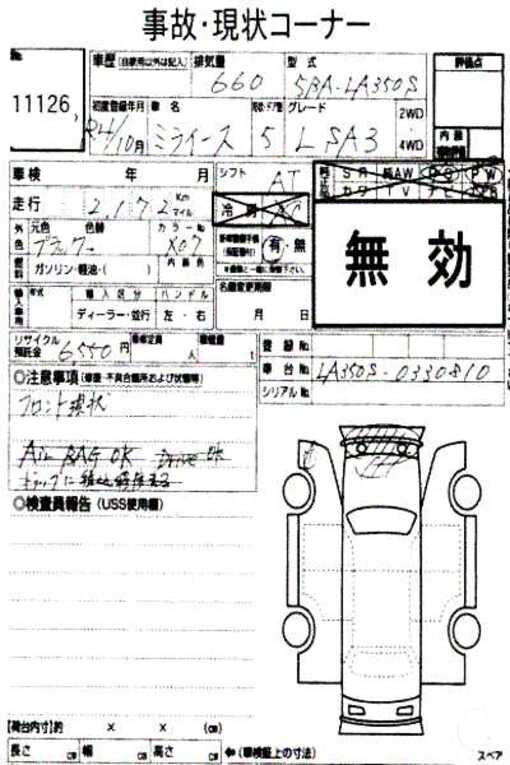 事故・現状コーナー
No.
11126
車歴 (自家用以外は記入) 排気量 型式
660 5BA-LA350S
評価点
初度登録年月 車名 形状・ドア数 グレード 2WD
R4/10月 ミライース 5 L SA3 4WD
内装
車検 年 月 シフト AT
SR 純AW PS PW
カワ TV ナビ
走行 2,172 Km マイル 冷房 AC
外色 元色 色替 カラーNo
ブラック X07
有・無
無効
燃料 ガソリン・軽油・( ) 内装色
名義変更期限
月 日
輸入車用 年式 輸入区分 ハンドル
ディーラー・並行 左・右
リサイクル預託金 6,550円 乗車定員 人 積載量 t
登録No
車台No LA350S-0330810
シリアルNo
◎注意事項 (修復・不具合箇所および状態等)
フロント現状
Air BAG OK Drive OK
◎検査員報告 (USS使用欄)
【荷台内寸】約 × × (cm)
長さ cm 幅 cm 高さ cm (車検証上の寸法)
スペア